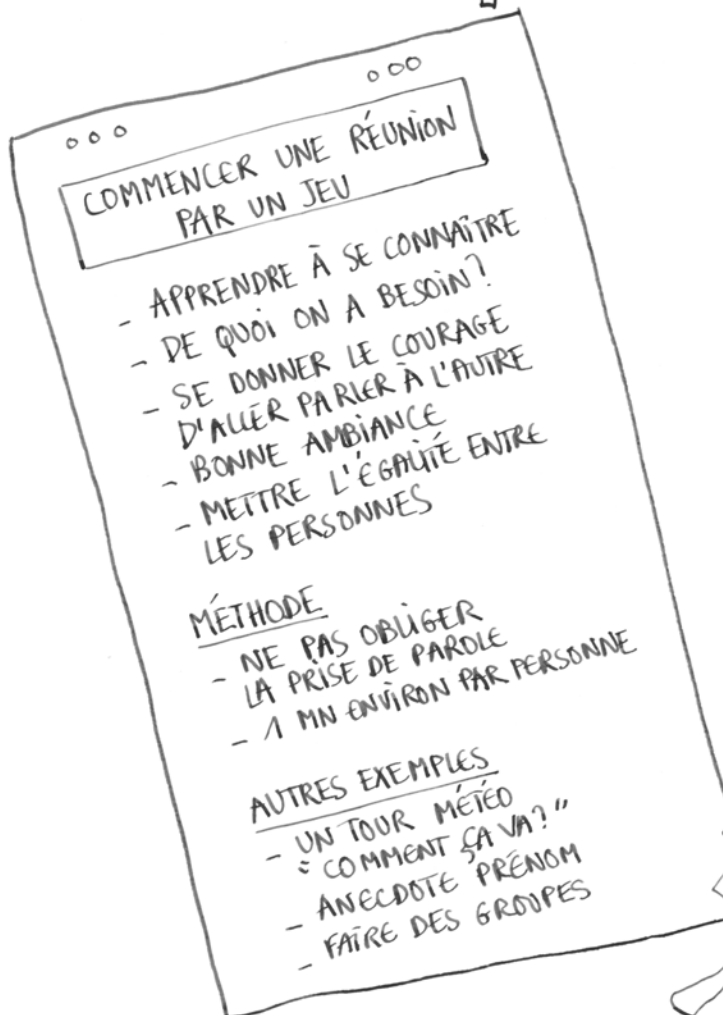 COMMENCER UNE RÉUNION
PAR UN JEU
- APPRENDRE À SE CONNAÎTRE
- DE QUOI ON A BESOIN?
- SE DONNER LE COURAGE
D'ALLER PARLER À L'AUTRE
- BONNE AMBIANCE
- METTRE L'ÉGALITÉ ENTRE
LES PERSONNES
MÉTHODE
- NE PAS OBLIGER
LA PRISE DE PAROLE
- 1 MN ENVIRON PAR PERSONNE
AUTRES EXEMPLES
- UN TOUR MÉTÉO
= COMMENT ÇA VA?"
- ANECDOTE PRÉNOM
- FAIRE DES GROUPES